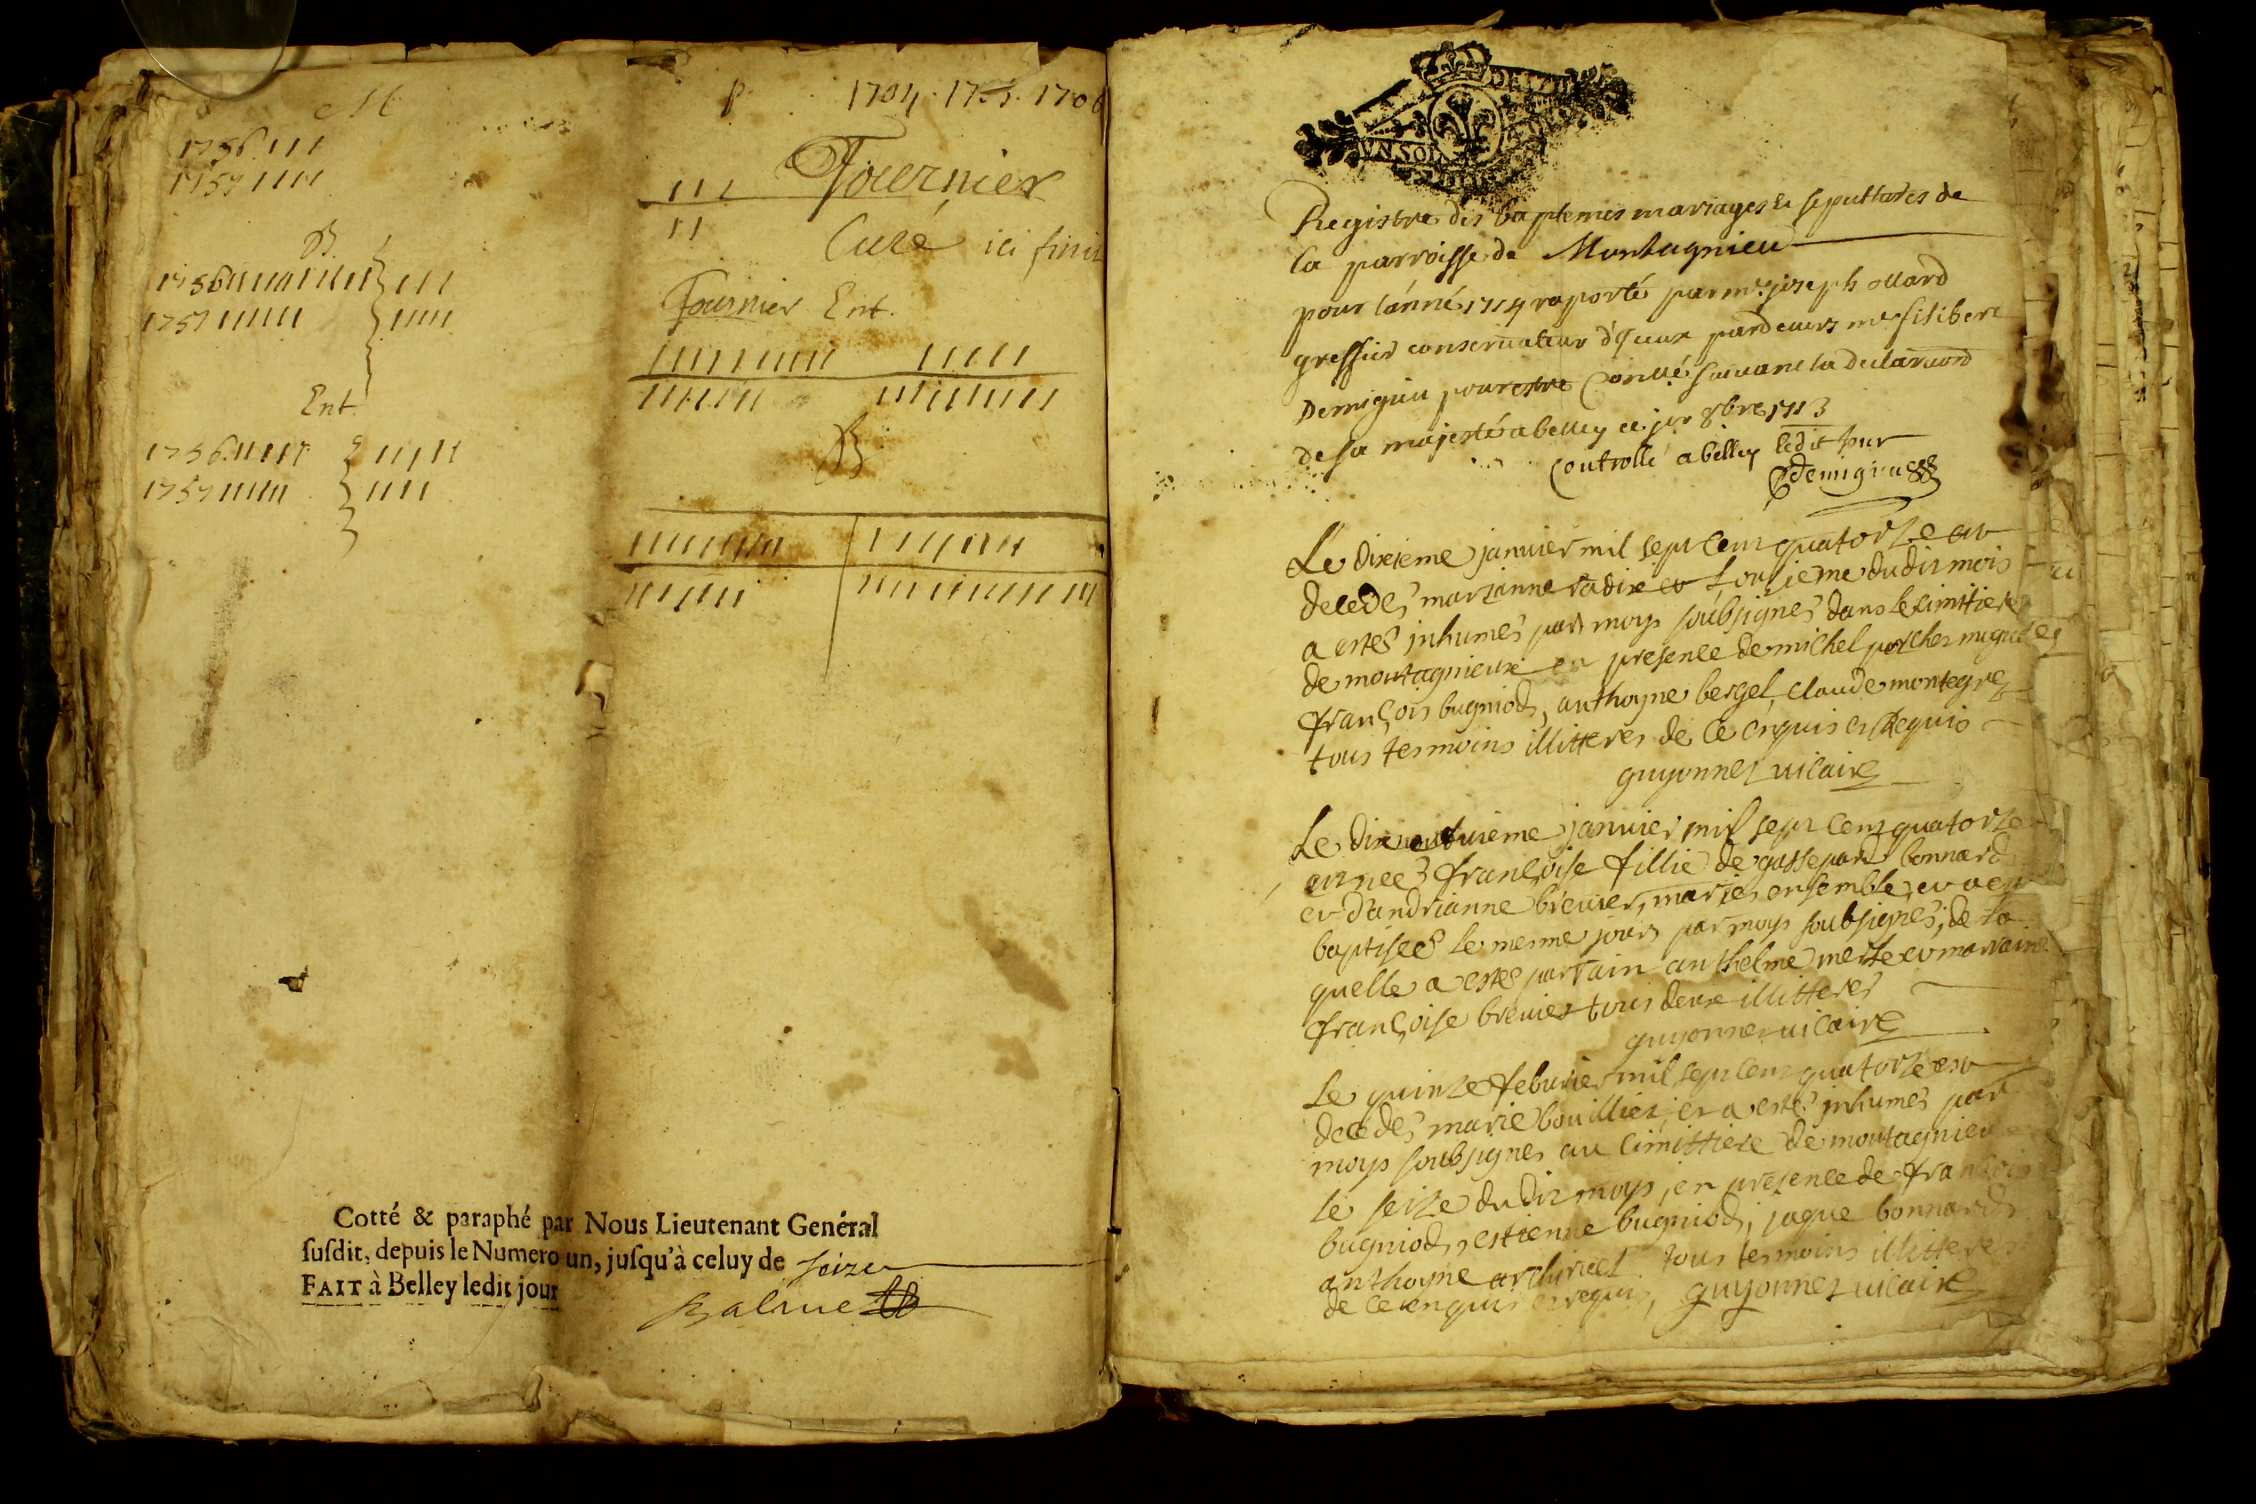 M
1756 III
1757 IIII
B
1756 IIIIIIIIIIIII } III
1757 IIIIII } IIIII
Ent.
1756 IIIII } IIIII
1757 IIIIII } IIII
P 1704. 1705. 1706
III Fournier
II Curé ici finir
Fournier Ent.
IIIIIIIIII IIIII
IIIIIII IIIIIIIIII
B
IIIIIIIII IIIIIIII
IIIIIII IIIIIIIIIIIII
Cotté & paraphé par Nous Lieutenant Genéral
susdit, depuis le Numero un, jusqu'à celuy de seize
FAIT à Belley ledit jour
Balme
UN SOL
Registre des baptemes mariages et sepultures de
la parroisse de Montagnieu
pour lánné 1714 raporté par mre joseph ollard
greffier conservateur d'iceux pardevers mre filibert
Demigieu pour estre Corillé suivant la declaraond
de sa majesté a belley ce jer 8bre 1713
Controllé a belley ledit jour
Demigieu
Le dixieme janvier mil sept cent quatorze est
decedé marianne radix et fouzieme dudit mois
a esté inhumés par moys soubsignés dans le cimittiere
de montagnieux en presence de michel porcher
françois bugniod, anthoyne bergel, claude montegre
tous tesmoins illitteres de ce enquis et Requis
guyonnet vicaire
Le dixneufvieme janvier mil sept cent quatorze
est neé françoise fillie de gassepard bonnard
et dandrianne brevier, mariés ensemble, et a esté
baptiseé le mesme jour par moys soubsignés, de la
quelle a estés parrain anthelme merle et marraine
françoise brevier tous deux illitteres
guyonnet vicaire
Le quinze febvrier mil sept cent quatorze est
decedés marie bouillier, et a estés inhumés par
moys soubsignes au cimittiere de montagnieu
le seize dudit moys, en presence de françois
bugniod, estienne bugniod, jaque bonnard
anthoyne tous tesmoins illitteres
de ce enquis et requis, guyonnet vicaire